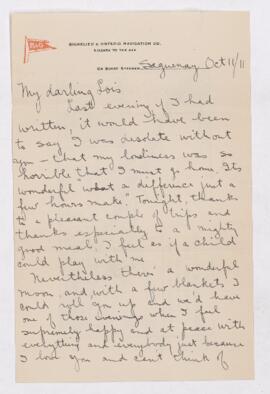 R&O
RICHELIEU & ONTARIO NAVIGATION CO.
NIAGARA TO THE SEA
ON BOARD STEAMER Saguenay Oct 11/11
My darling Lois
Last evening if I had
written, it would have been
to say I was desolate without
you - that my loneliness was so
horrible that I must go home. Its
wonderful "what a difference just a
few hours make". Tonight, thanks
to a pleasant couple of trips and
thanks especially to a mighty
good meal I feel as if a child
could play with me
Nevertheless there's a wonderful
moon, and with a few blankets I
could roll you up and we'd have
one of those evenings when I feel
supremely happy and at peace with
everything and everybody just because
I love you and can't think of